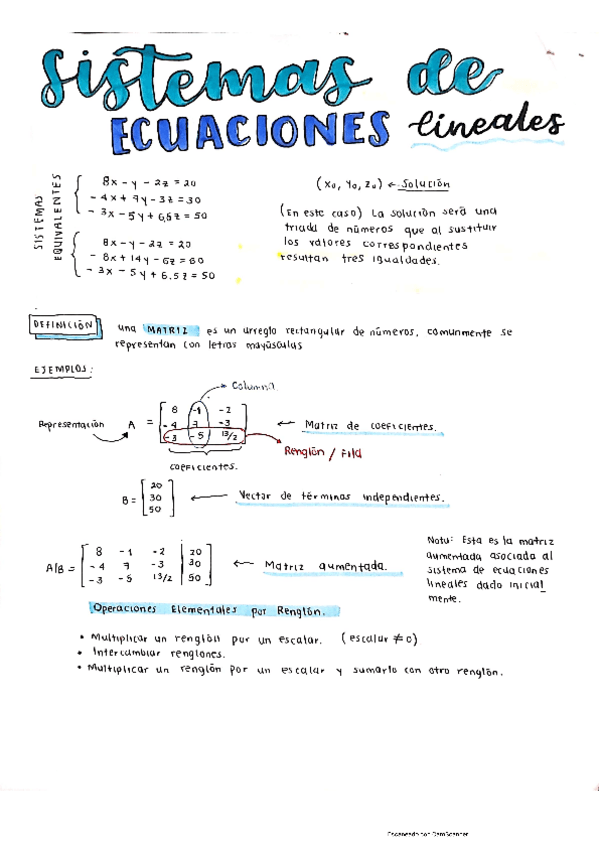 Sistemas de
ECUACIONES lineales
SISTEMAS
EQUIVALENTES
8x - y - 2z = 20
- 4x + 7y - 3z = 30
- 3x - 5y + 6,5z = 50
8x - y - 2z = 20
- 8x + 14y - 6z = 60
- 3x - 5y + 6.5z = 50
(x0, y0, z0) ← Solución
(En este caso) La solución será una
triada de números que al sustituir
los valores correspondientes
resultan tres igualdades.
DEFINICIÓN
una MATRIZ es un arreglo rectangular de números, comunmente se
representan con letras mayúsculas
EJEMPLOS:
Columna
Representación
A =
8 -1 -2
-4 7 -3
-3 -5 13/2
← Matriz de coeficientes.
Renglón / Fila
coeficientes.
B =
20
30
50
← Vector de términos independientes.
A|B =
8 -1 -2 | 20
-4 7 -3 | 30
-3 -5 13/2 | 50
← Matriz aumentada.
Nota: Esta es la matriz
aumentada asociada al
sistema de ecuaciones
lineales dado inicial
mente.
Operaciones Elementales por Renglón.
• Multiplicar un renglón por un escalar. (escalar ≠ 0)
• Intercambiar renglones.
• Multiplicar un renglón por un escalar y sumarlo con otro renglón.
Escaneado con CamScanner